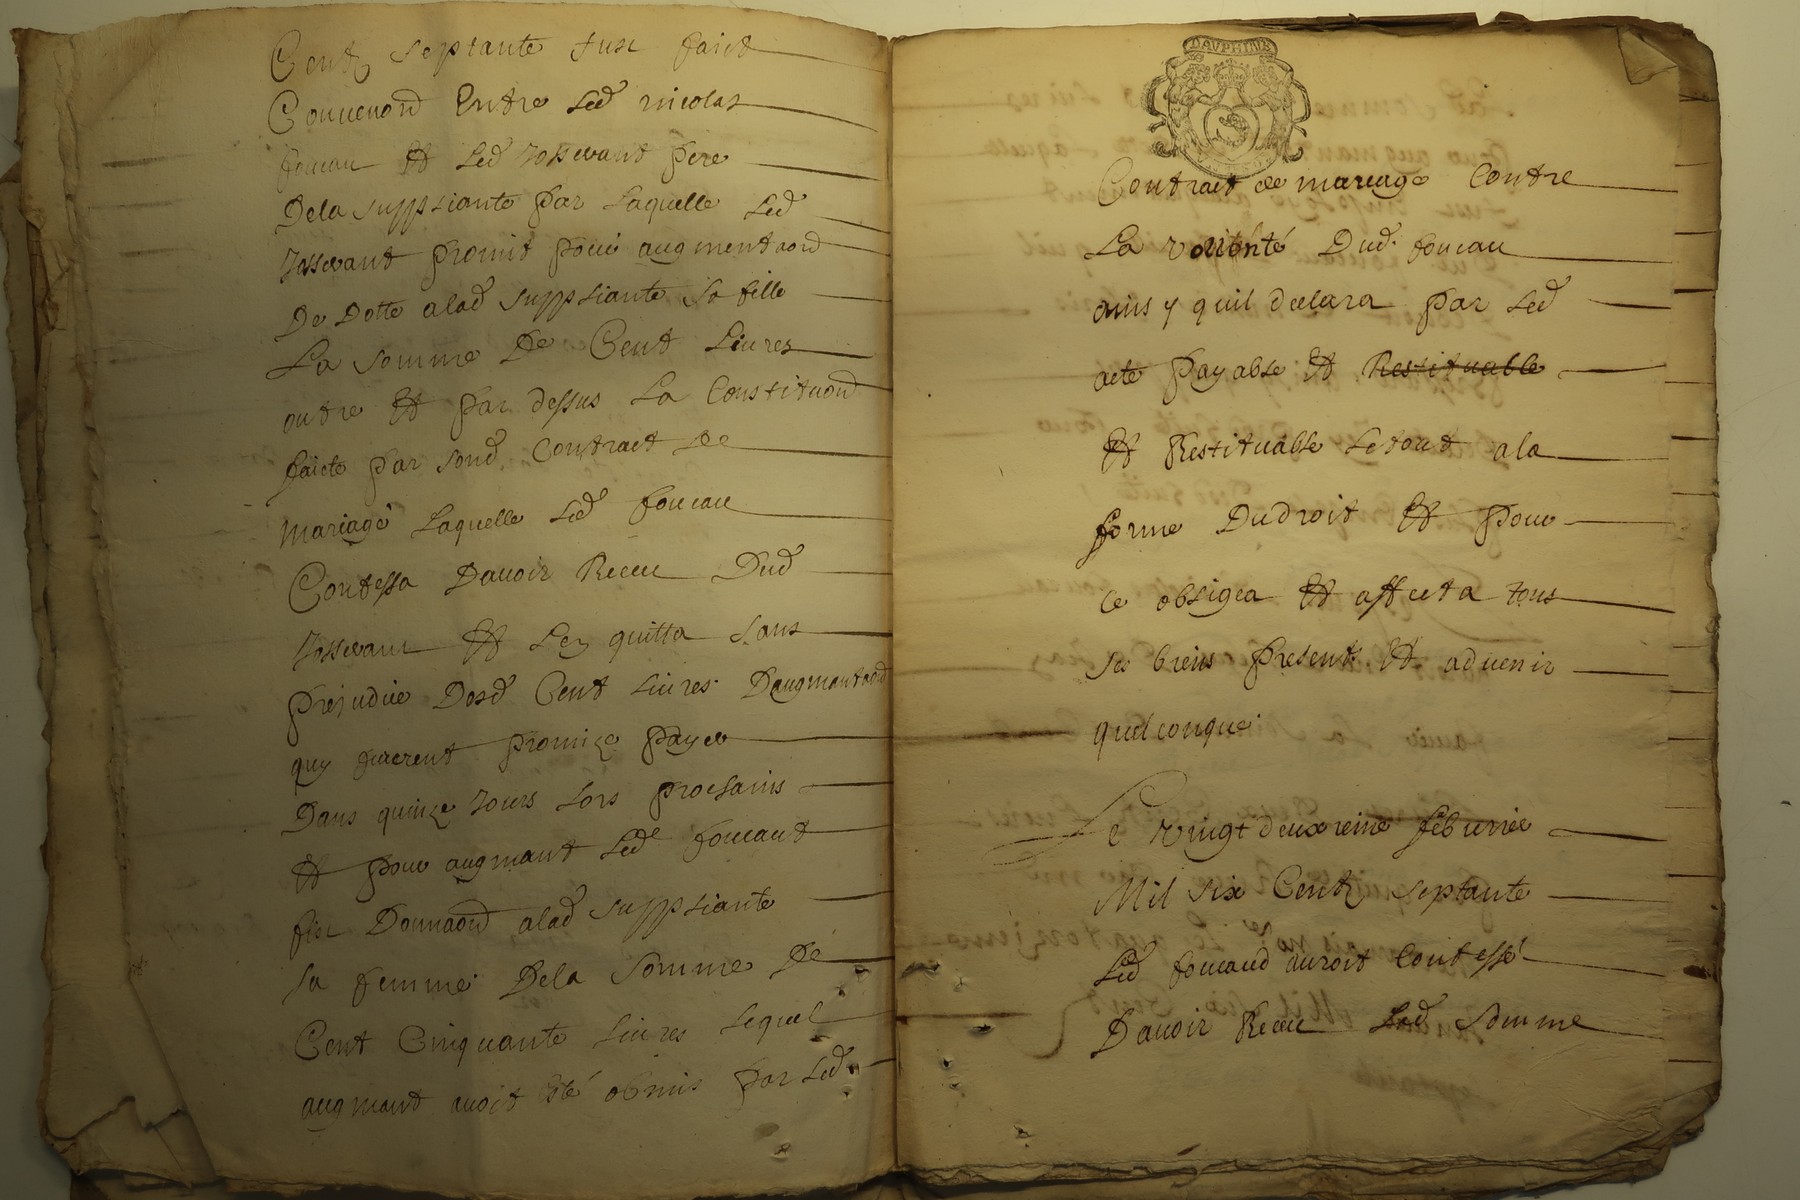 Cent septante fust faict
Convenond Entre led nicolas
foucau Et led Josserant pere
Dela suppliante par laquelle led
Josserant promit pour augmentaond
De Dotte alad suppliante sa fille
La somme De Cent Livres
outre Et par dessus La Constituond
faicte par sond. Contract de
mariage Laquelle led foucau
Confessa Davoir Receu Dud
Josserant Et Len quitta sans
prejudice Desd Cent livres Daugmantaond
quy furent promize payer
Dans quinze Jours lors prochains
Et pour augmant led foucaut
fist Donnaond alad suppliante
sa femme Dela somme De
Cent Cinquante livres lequel
augmant avoit esté obmis par led
DAUPHINE
Contract de mariage Contre
La volonté Dud. foucau
ainsy quil declara par led
acte payable Et Restituable
Et Restituable letout ala
forme Dudroit Et pour
ce obligea Et affecta tous
ses biens present Et advenir
quelconque
Le vingt deuxieme feburier
Mil six Centz septante
Led foucaud auroit Confessé
Davoir Receu Lad somme